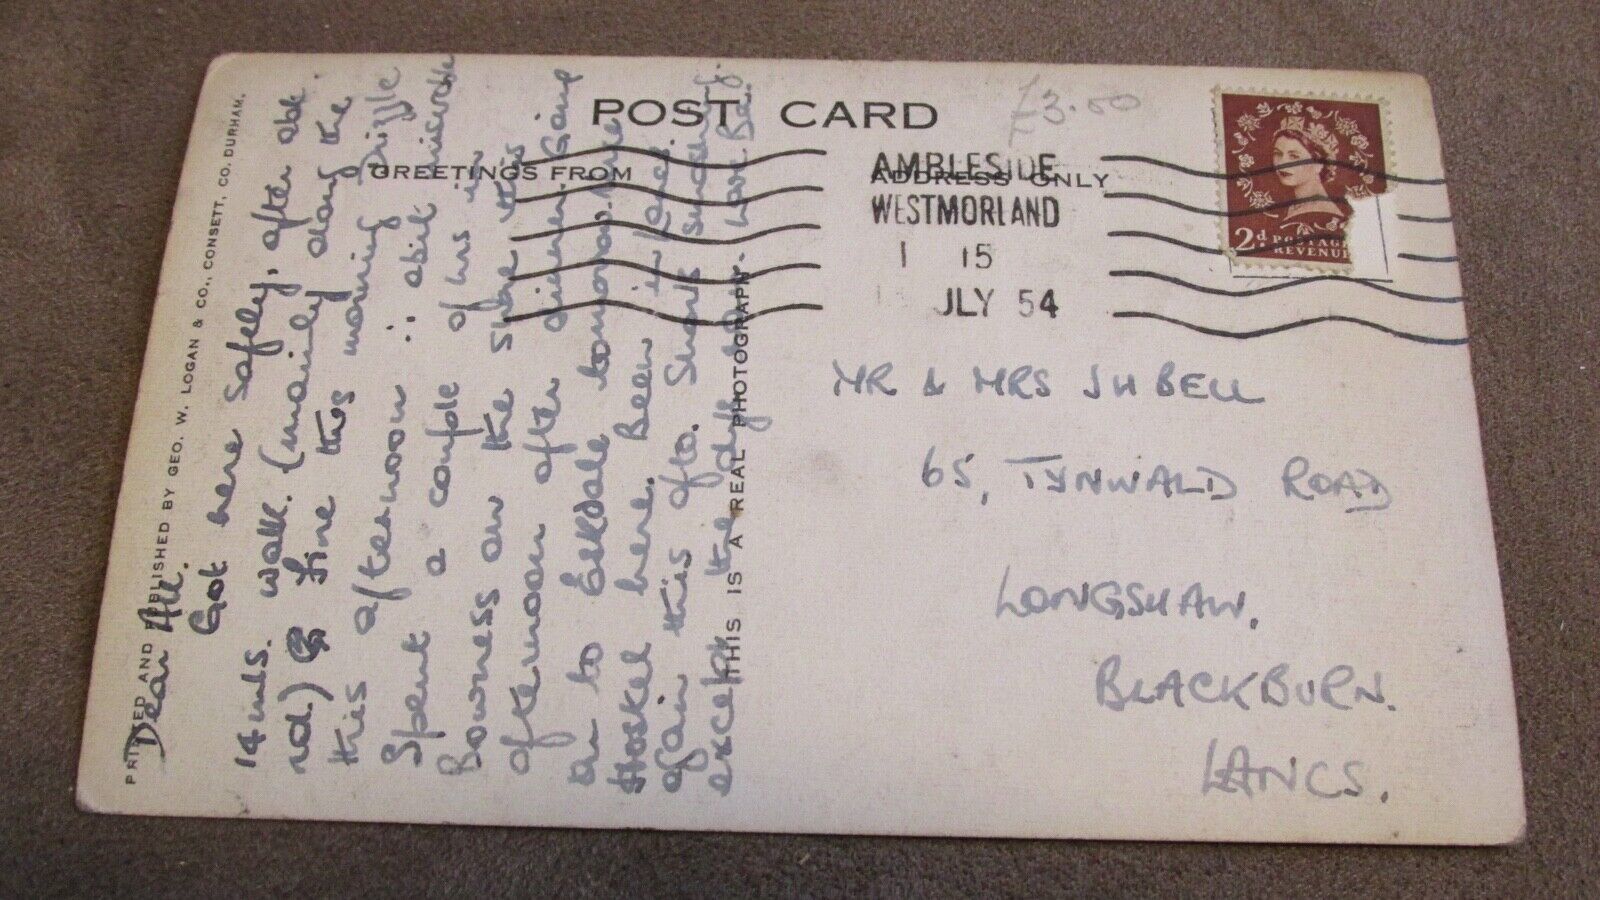 POST CARD
£3.00
GREETINGS FROM
ADDRESS ONLY
AMBLESIDE
WESTMORLAND
1 15
JLY 54
2d. POSTAGE
REVENUE
PRINTED AND PUBLISHED BY GEO. W. LOGAN & CO., CONSETT, CO. DURHAM.
Dear All.
Got here safely, after abt
14 mls. walk. (mainly along the
rd.) Fine this morning drizzle
this afternoon ∴ abit miserable
Spent a couple of hrs in
Bowness on the shore this
afternoon after dinner. Going
on to Eskdale tomorrow. Nice
Hostel here. Been in
again this afto. Smarts
except the love Ba.
THIS IS A REAL PHOTOGRAPH.
MR & MRS J H BELL
65, TYNWALD ROAD
LONGSHAW.
BLACKBURN.
LANCS.